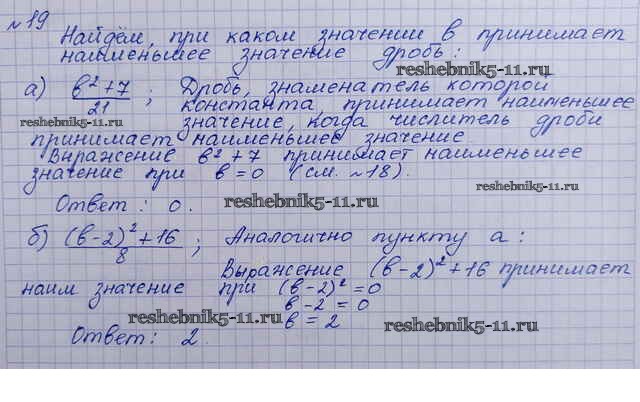 № 19
Найдём, при каком значении в принимает
наименьшее значение дробь:
reshebnik5-11.ru
а) в² + 7 / 21 ; Дробь, знаменатель которой
константа, принимает наименьшее
reshebnik5-11.ru
значение, когда числитель дроби
принимает наименьшее значение.
Выражение в² + 7 принимает наименьшее
значение при в = 0 (см. № 18).
reshebnik5-11.ru
Ответ: 0.
reshebnik5-11.ru
б) (в - 2)² + 16 / 8 ; Аналогично пункту а:
Выражение (в - 2)² + 16 принимает
наим значение при (в - 2)² = 0
в - 2 = 0
reshebnik5-11.ru
в = 2
reshebnik5-11.ru
Ответ: 2.